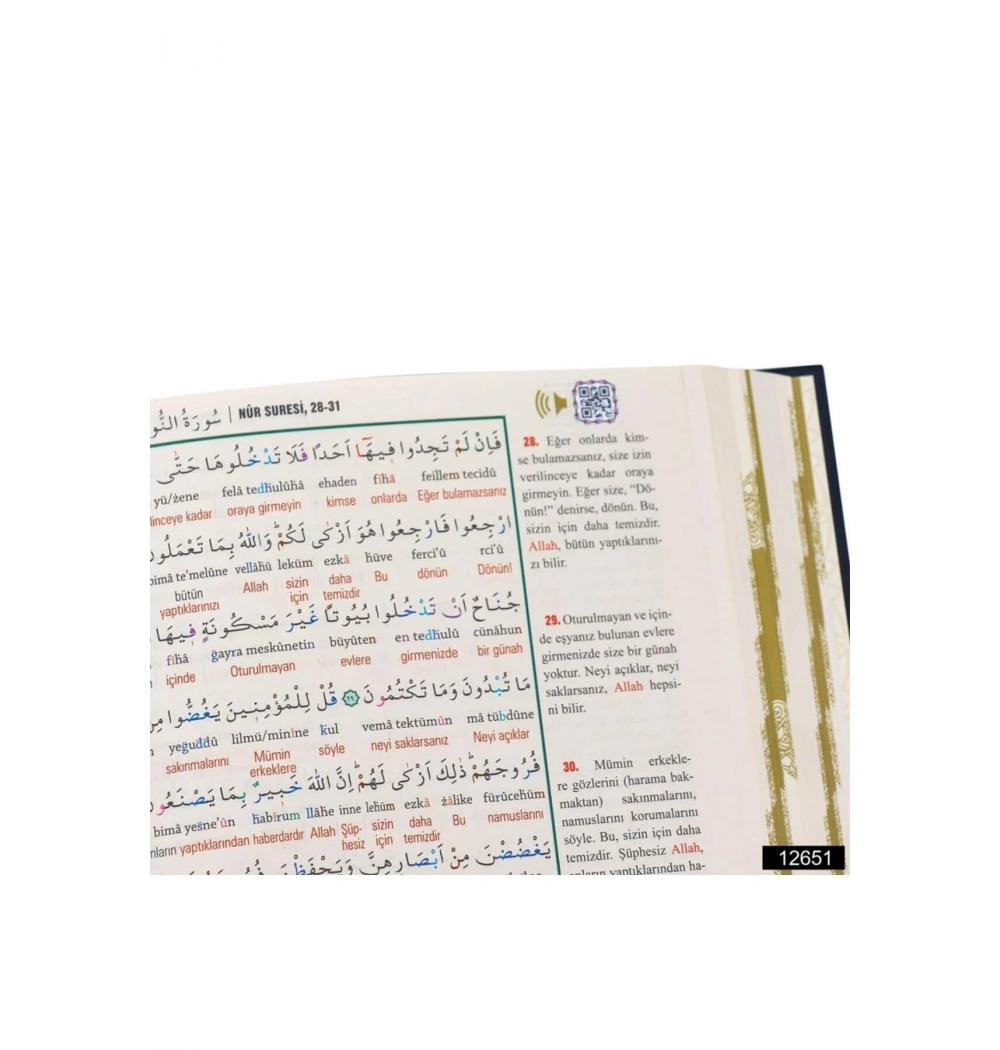 سُورَةُ النُّو | NÛR SURESİ, 28-31
فَاِنْ لَمْ تَجِدُوا فٖيهَٓا اَحَدًا فَلَا تَدْخُلُوهَا حَتّٰى
yü/żene felâ tedḣulûhâ ehaden fîhâ feillem tecidû
linceye kadar oraya girmeyin kimse onlarda Eğer bulamazsanız
ارْجِعُوا فَارْجِعُوا هُوَ اَزْكٰى لَكُمْ وَاللّٰهُ بِمَا تَعْمَلُونَ
bimâ te'melûne vellâhü leküm ezkâ hüve ferci'û rci'û
bütün Allah sizin daha Bu dönün Dönün!
yaptıklarınızı için temizdir
جُنَاحٌ اَنْ تَدْخُلُوا بُيُوتًا غَيْرَ مَسْكُونَةٍ فٖيهَا
fîhâ ğayra meskûnetin büyûten en tedḣulû cünâhun
içinde Oturulmayan evlere girmenizde bir günah
مَا تُبْدُونَ وَمَا تَكْتُمُونَ ﴿٢٩﴾ قُلْ لِلْمُؤْمِنٖينَ يَغُضُّوا مِنْ
yeğuddû lilmü/minîne kul vemâ tektümûn mâ tübdûne
sakınmalarını Mümin söyle neyi saklarsanız Neyi açıklar
erkeklere
فُرُوجَهُمْ ذٰلِكَ اَزْكٰى لَهُمْ اِنَّ اللّٰهَ خَبٖيرٌ بِمَا يَصْنَعُونَ
bimâ yesne'ûn ḣabîrum llâhe inne lehüm ezkâ żâlike fürûcehüm
nların yaptıklarından haberdardır Allah Şüp- sizin daha Bu namuslarını
hesiz için temizdir
يَغْضُضْنَ مِنْ اَبْصَارِهِنَّ وَيَحْفَظْنَ
28. Eğer onlarda kim-
se bulamazsanız, size izin
verilinceye kadar oraya
girmeyin. Eğer size, “Dö-
nün!” denirse, dönün. Bu,
sizin için daha temizdir.
Allah, bütün yaptıklarını-
zı bilir.
29. Oturulmayan ve için-
de eşyanız bulunan evlere
girmenizde size bir günah
yoktur. Neyi açıklar, neyi
saklarsanız, Allah hepsi-
ni bilir.
30. Mümin erkekle-
re gözlerini (harama bak-
maktan) sakınmalarını,
namuslarını korumalarını
söyle. Bu, sizin için daha
temizdir. Şüphesiz Allah,
onların yaptıklarından ha-
12651